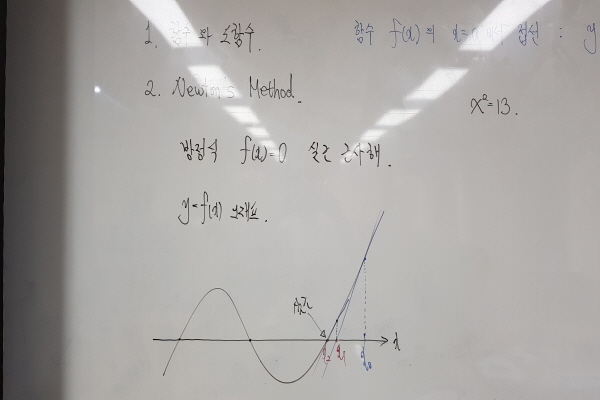 1. 함수 와 도함수.
함수 f(x) 의 x= 에서 접선 : y
2. Newton's Method.
x²=13.
방정식 f(x)=0 실근 근사해.
y=f(x) 그래프.
x